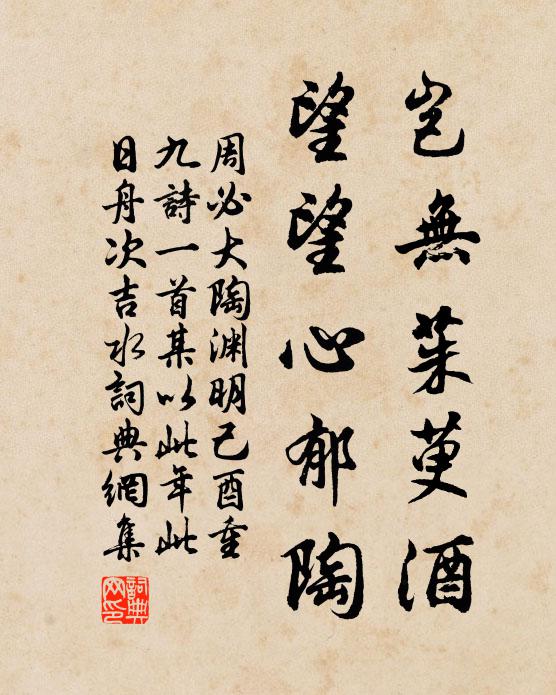 豈無茱萸酒
望望心郁陶
周必大陶淵明己酉重
九詩一首某以此年此
日舟次吉水詞典網集
詞典
网印